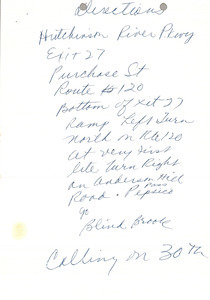 Directions
Hutchinson River Pkwy
Exit 27
Purchase St
Route # 120
Bottom of Exit 27
Ramp Left Turn
North on Rte 120
At very first
lite Turn Right
on Anderson Hill
Road - Pass Pepsico
go
Blind Brook
Calling on 30th